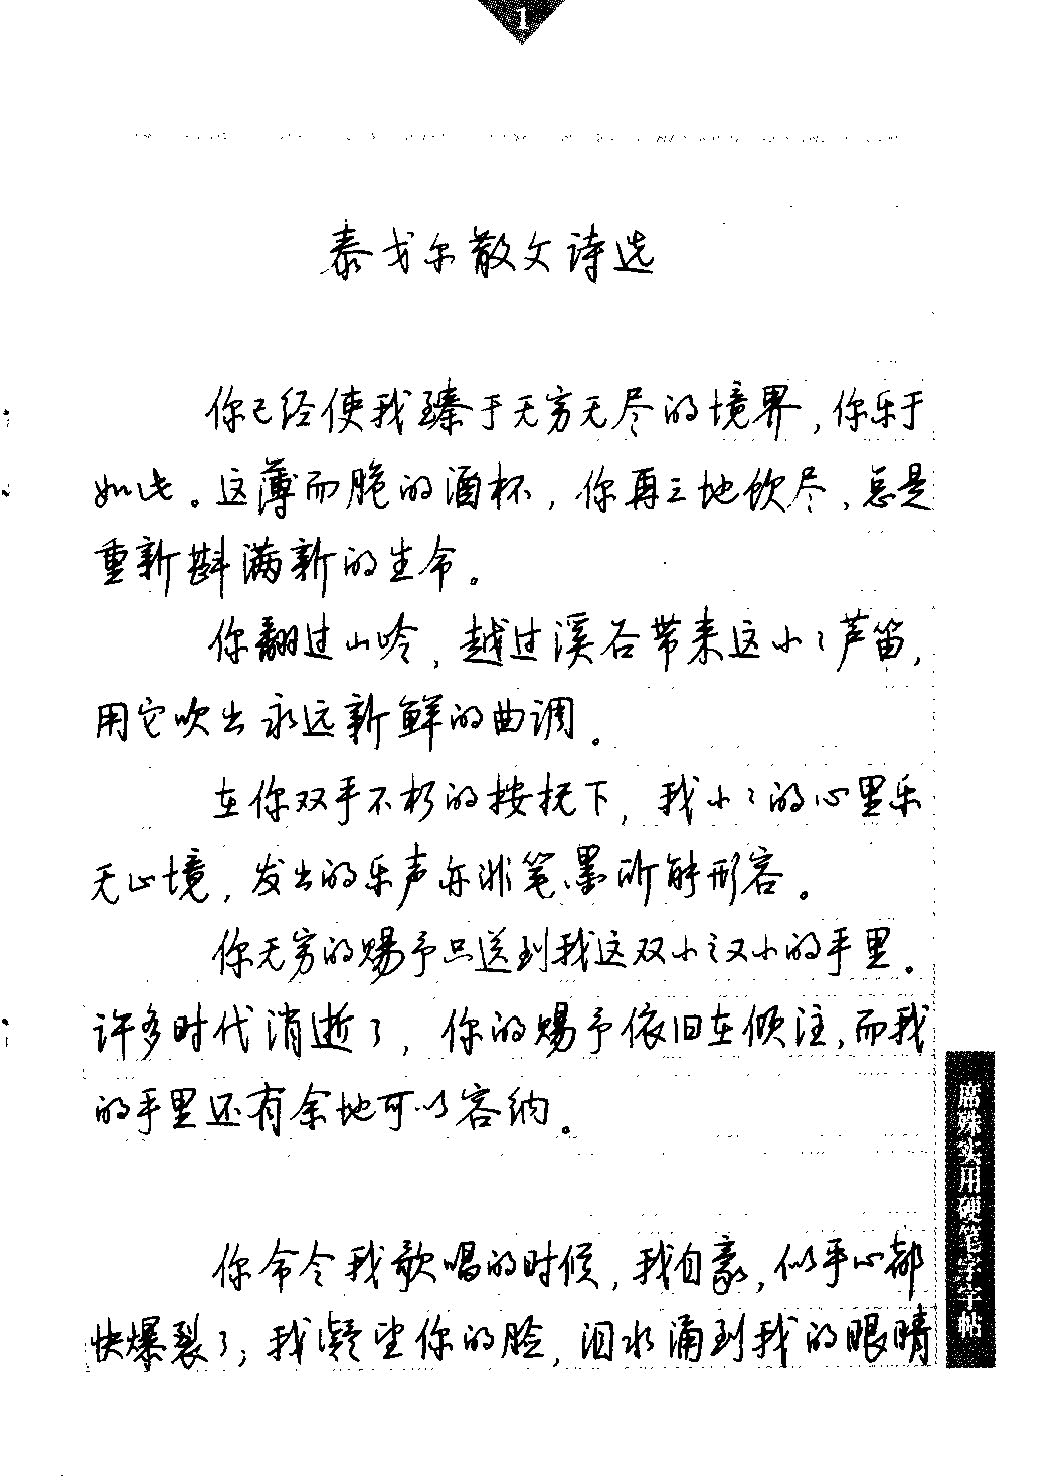 1
泰戈尔散文诗选
你已经使我臻于无穷无尽的境界，你乐于
如此。这薄而脆的酒杯，你再三地饮尽，总是
重新斟满新的生命。
你翻过山岭，越过溪石带来这小小芦笛，
用它吹出永远新鲜的曲调。
在你双手不朽的按抚下，我小小的心里乐
无止境，发出的乐声亦非笔墨所能形容。
你无穷的赐予只送到我这双小之又小的手里。
许多时代消逝了，你的赐予依旧在倾注，而我
的手里还有余地可以容纳。
你命令我歌唱的时候，我自豪，似乎心都
快爆裂了，我凝望你的脸，泪水涌到我的眼睛
席殊实用硬笔字字帖